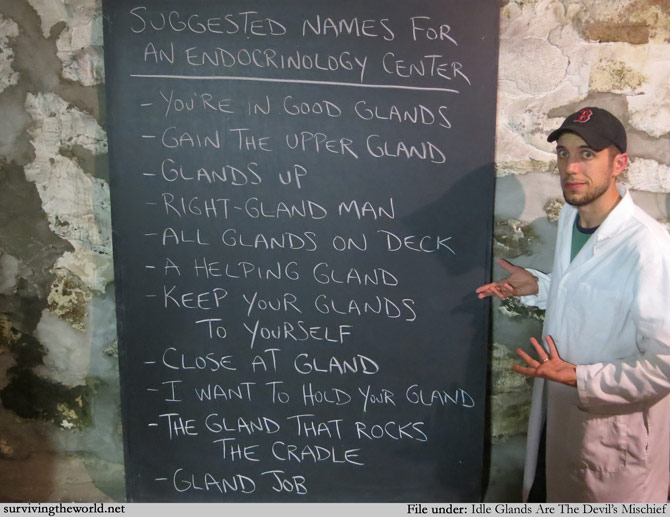 SUGGESTED NAMES FOR
AN ENDOCRINOLOGY CENTER
- YOU'RE IN GOOD GLANDS
- GAIN THE UPPER GLAND
- GLANDS UP
- RIGHT-GLAND MAN
- ALL GLANDS ON DECK
- A HELPING GLAND
- KEEP YOUR GLANDS
TO YOURSELF
- CLOSE AT GLAND
- I WANT TO HOLD YOUR GLAND
- THE GLAND THAT ROCKS
THE CRADLE
- GLAND JOB
B
survivingtheworld.net
File under: Idle Glands Are The Devil's Mischief